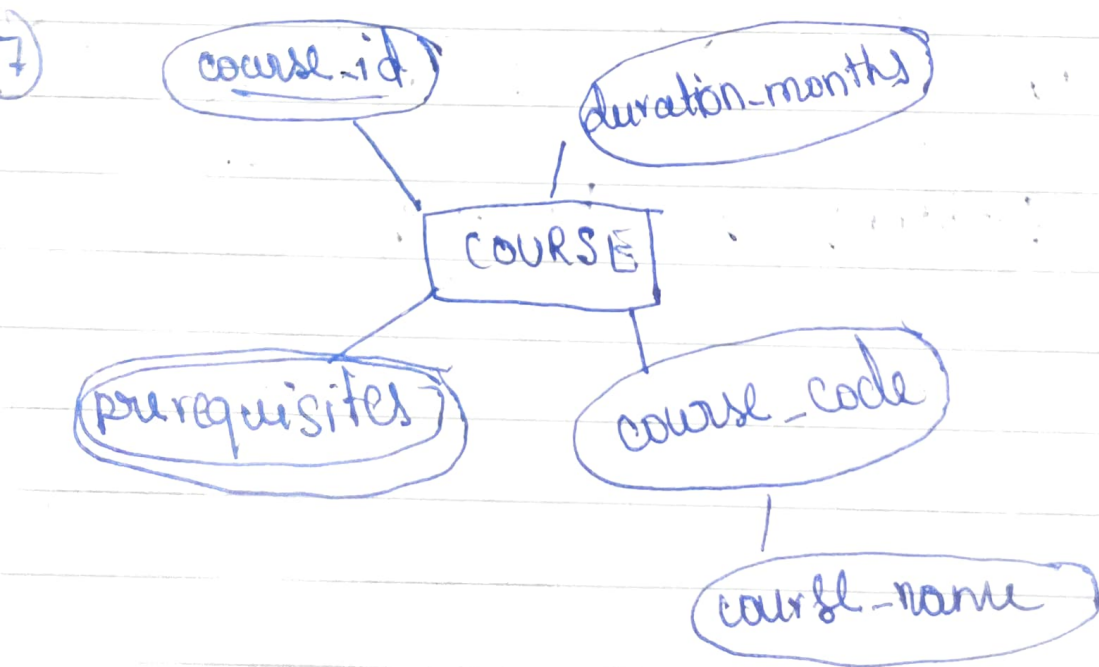 7
course_id
duration_months
COURSE
prerequisites
course_code
course_name